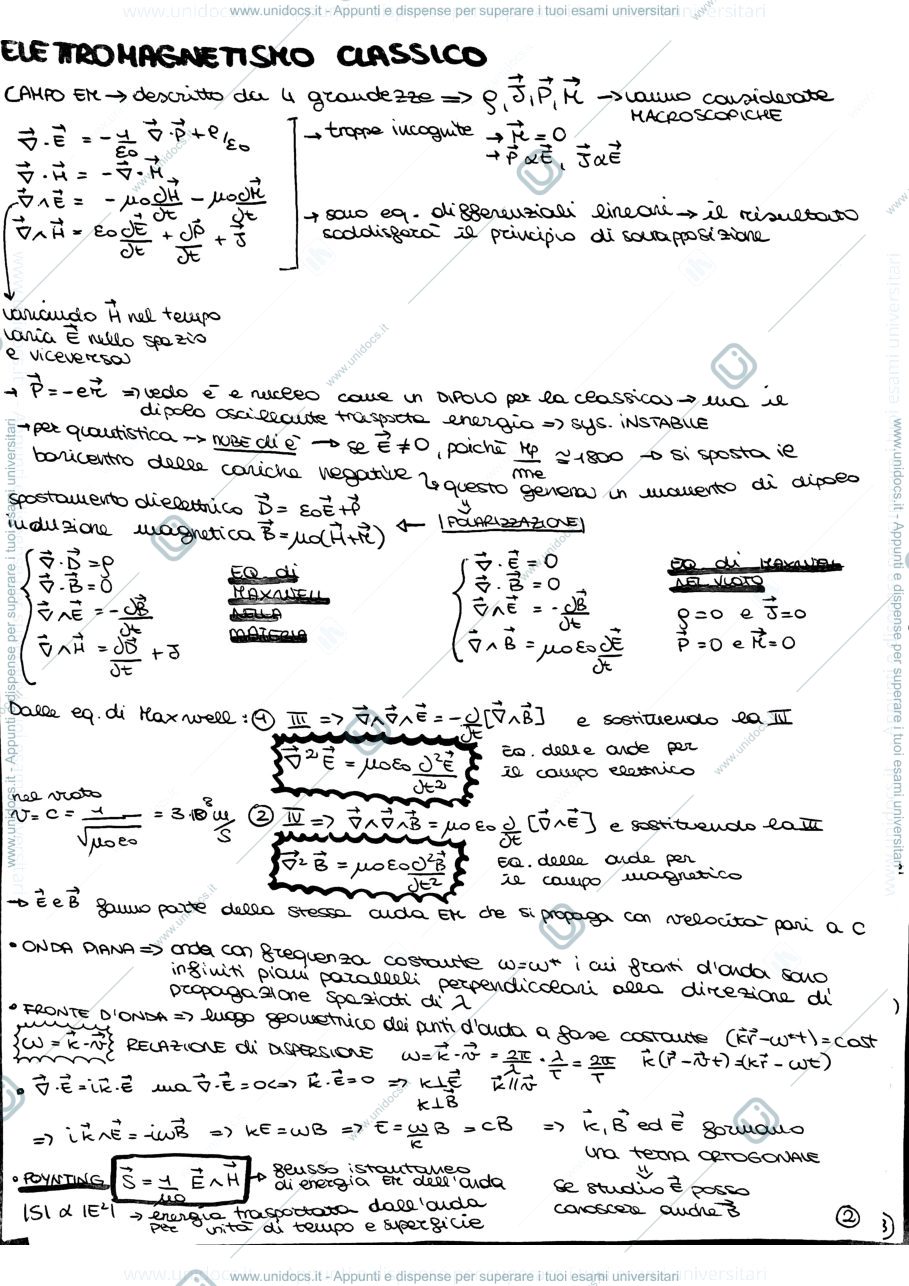 www.unidocs.it - Appunti e dispense per superare i tuoi esami universitari
ELETTROMAGNETISMO CLASSICO
CAMPO EM → descritto da 4 grandezze => ρ, J⃗, P⃗, M⃗ → vanno considerate
MACROSCOPICHE
∇⃗·E⃗ = -1/ε0 ∇⃗·P⃗ + ρ/ε0
→ troppe incognite → M⃗ = 0
→ P⃗ ∝ E⃗, J⃗ ∝ E⃗
∇⃗·H⃗ = -∇⃗·M⃗
∇⃗∧E⃗ = -μ0 ∂H⃗/∂t - μ0 ∂M⃗/∂t
∇⃗∧H⃗ = ε0 ∂E⃗/∂t + ∂P⃗/∂t + J⃗
→ sono eq. differenziali lineari → il risultato
soddisferà il principio di sovrapposizione
variando H⃗ nel tempo
varia E⃗ nello spazio
e viceversa
→ P⃗ = -er⃗ => vedo e⁻ e nucleo come un DIPOLO per la classica → ma il
dipolo oscillante trasporta energia => sys. INSTABILE
→ per quantistica → NUBE di e⁻ → se E⃗ ≠ 0, poichè Mp/me ≃ 1800 → si sposta il
baricentro delle cariche negative ↳ questo genera un momento di dipolo
spostamento dielettrico D⃗ = ε0E⃗+P⃗
induzione magnetica B⃗ = μ0(H⃗+M⃗) ← |POLARIZZAZIONE|
∇⃗·D⃗ = ρ
∇⃗·B⃗ = 0
∇⃗∧E⃗ = -∂B⃗/∂t
∇⃗∧H⃗ = ∂D⃗/∂t + J
EQ di
MAXWELL
NELLA
MATERIA
∇⃗·E⃗ = 0
∇⃗·B⃗ = 0
∇⃗∧E⃗ = -∂B⃗/∂t
∇⃗∧B⃗ = μ0ε0 ∂E⃗/∂t
EQ di MAXWELL
NEL VUOTO
ρ=0 e J⃗=0
P⃗=0 e M⃗=0
Dalle eq. di Maxwell: ① III => ∇⃗∧∇⃗∧E⃗ = -∂/∂t [∇⃗∧B⃗] e sostituendo la III
∇⃗²E⃗ = μ0ε0 ∂²E⃗/∂t²
EQ. delle onde per
il campo elettrico
nel vuoto
v = c = 1/√μ0ε0 = 3·10⁸ m/s
② IV => ∇⃗∧∇⃗∧B⃗ = μ0ε0 ∂/∂t [∇⃗∧E⃗] e sostituendo la III
∇⃗²B⃗ = μ0ε0 ∂²B⃗/∂t²
EQ. delle onde per
il campo magnetico
→ E⃗ e B⃗ fanno parte della stessa onda EM che si propaga con velocità pari a c
• ONDA PIANA => onda con frequenza costante ω=ω* i cui fronti d'onda sono
infiniti piani paralleli perpendicolari alla direzione di
propagazione spaziati di λ
• FRONTE D'ONDA => luogo geometrico dei punti d'onda a fase costante (k⃗r⃗-ω*t)=cost
{ω = k⃗·v⃗} RELAZIONE di DISPERSIONE ω=k⃗·v⃗ = 2π/λ · λ/T = 2π/T k⃗(r⃗-v⃗t)=(k⃗r⃗-ωt)
• ∇⃗·E⃗=ik⃗·E⃗ ma ∇⃗·E⃗=0<=> k⃗·E⃗=0 => k⊥E⃗ k⃗//v⃗
k⊥B⃗
=> ik⃗∧E⃗=-iωB⃗ => kE=ωB => E=ω/k B = cB => k⃗, B⃗ ed E⃗ formano
una terna ORTOGONALE
• POYNTING S⃗ = 1/μ0 E⃗∧H⃗ → flusso istantaneo
di energia EM dell'onda
⇓
se studio E⃗ posso
conoscere anche B⃗
|S| ∝ |E²| → energia trasportata dall'onda
per unità di tempo e superficie
②
3)
www.unidocs.it - Appunti e dispense per superare i tuoi esami universitari